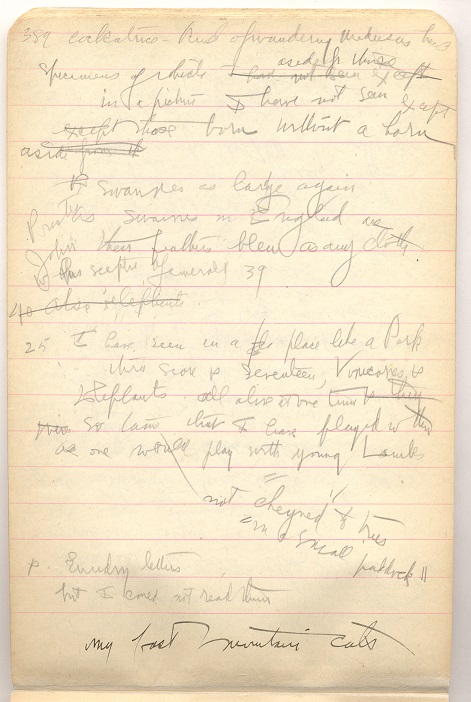 389 cockatrice - kind of wandering medusas
aside from
specimens of which I have not seen except
in a picture I have not seen except
except those born without a horn
aside from it
swannes as large again
as swannes in England are
their feathers blew as any cloth
his sceptre of emerald 39
40 also elephants
25 I have seen in a place like a Park
three score & seventeen, Vnicornes, &
Elephants all alive at one time & they
were So tame that I have played w them
as one would play with young Lambs
not "cheyned" to trees
"in a small paddock"
p. Sundry letters
but I coued not read them
my least mountain cats